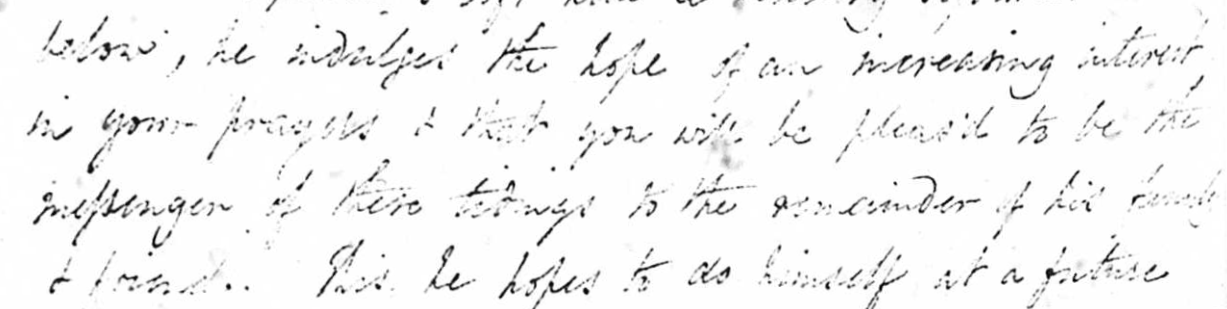 below, he indulges the hope of an increasing interest
in your prayers & that you will be pleas'd to be the
messenger of these tidings to the remainder of his family
& friends. This he hopes to do himself at a future